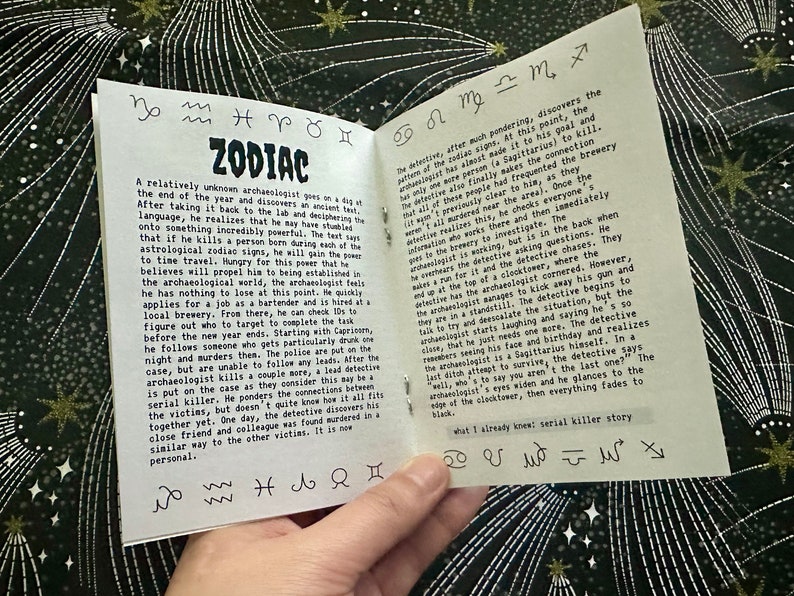 ZODIAC
A relatively unknown archaeologist goes on a dig at
the end of the year and discovers an ancient text.
After taking it back to the lab and deciphering the
language, he realizes that he may have stumbled
onto something incredibly powerful. The text says
that if he kills a person born during each of the
astrological zodiac signs, he will gain the power
to time travel. Hungry for this power that he
believes will propel him to being established in
the archaeological world, the archaeologist feels
he has nothing to lose at this point. He quickly
applies for a job as a bartender and is hired at a
local brewery. From there, he can check IDs to
figure out who to target to complete the task
before the new year ends. Starting with Capricorn,
he follows someone who gets particularly drunk one
night and murders them. The police are put on the
case, but are unable to follow any leads. After the
archaeologist kills a couple more, a lead detective
is put on the case as they consider this may be a
serial killer. He ponders the connections between
the victims, but doesn't quite know how it all fits
together yet. One day, the detective discovers his
close friend and colleague was found murdered in a
similar way to the other victims. It is now
personal.
The detective, after much pondering, discovers the
pattern of the zodiac signs. At this point, the
archaeologist has almost made it to his goal and
has only one more person (a Sagittarius) to kill.
The detective also finally makes the connection
that all of these people had frequented the brewery
(it wasn't previously clear to him, as they
weren't all murdered near the area). Once the
detective realizes this, he checks everyone's
information who works there and then immediately
goes to the brewery to investigate. The
archaeologist is working, but is in the back when
he overhears the detective asking questions. He
makes a run for it and the detective chases. They
end up at the top of a clocktower, where the
detective has the archaeologist cornered. However,
the archaeologist manages to kick away his gun and
they are in a standstill. The detective begins to
talk to try and deescalate the situation, but the
archaeologist starts laughing and saying he's so
close, that he just needs one more. The detective
remembers seeing his face and birthday and realizes
the archaeologist is a Sagittarius himself. In a
last ditch attempt to survive, the detective says
"well, who's to say you aren't the last one?" The
archaeologist's eyes widen and he glances to the
edge of the clocktower, then everything fades to
black.
what I already knew: serial killer story